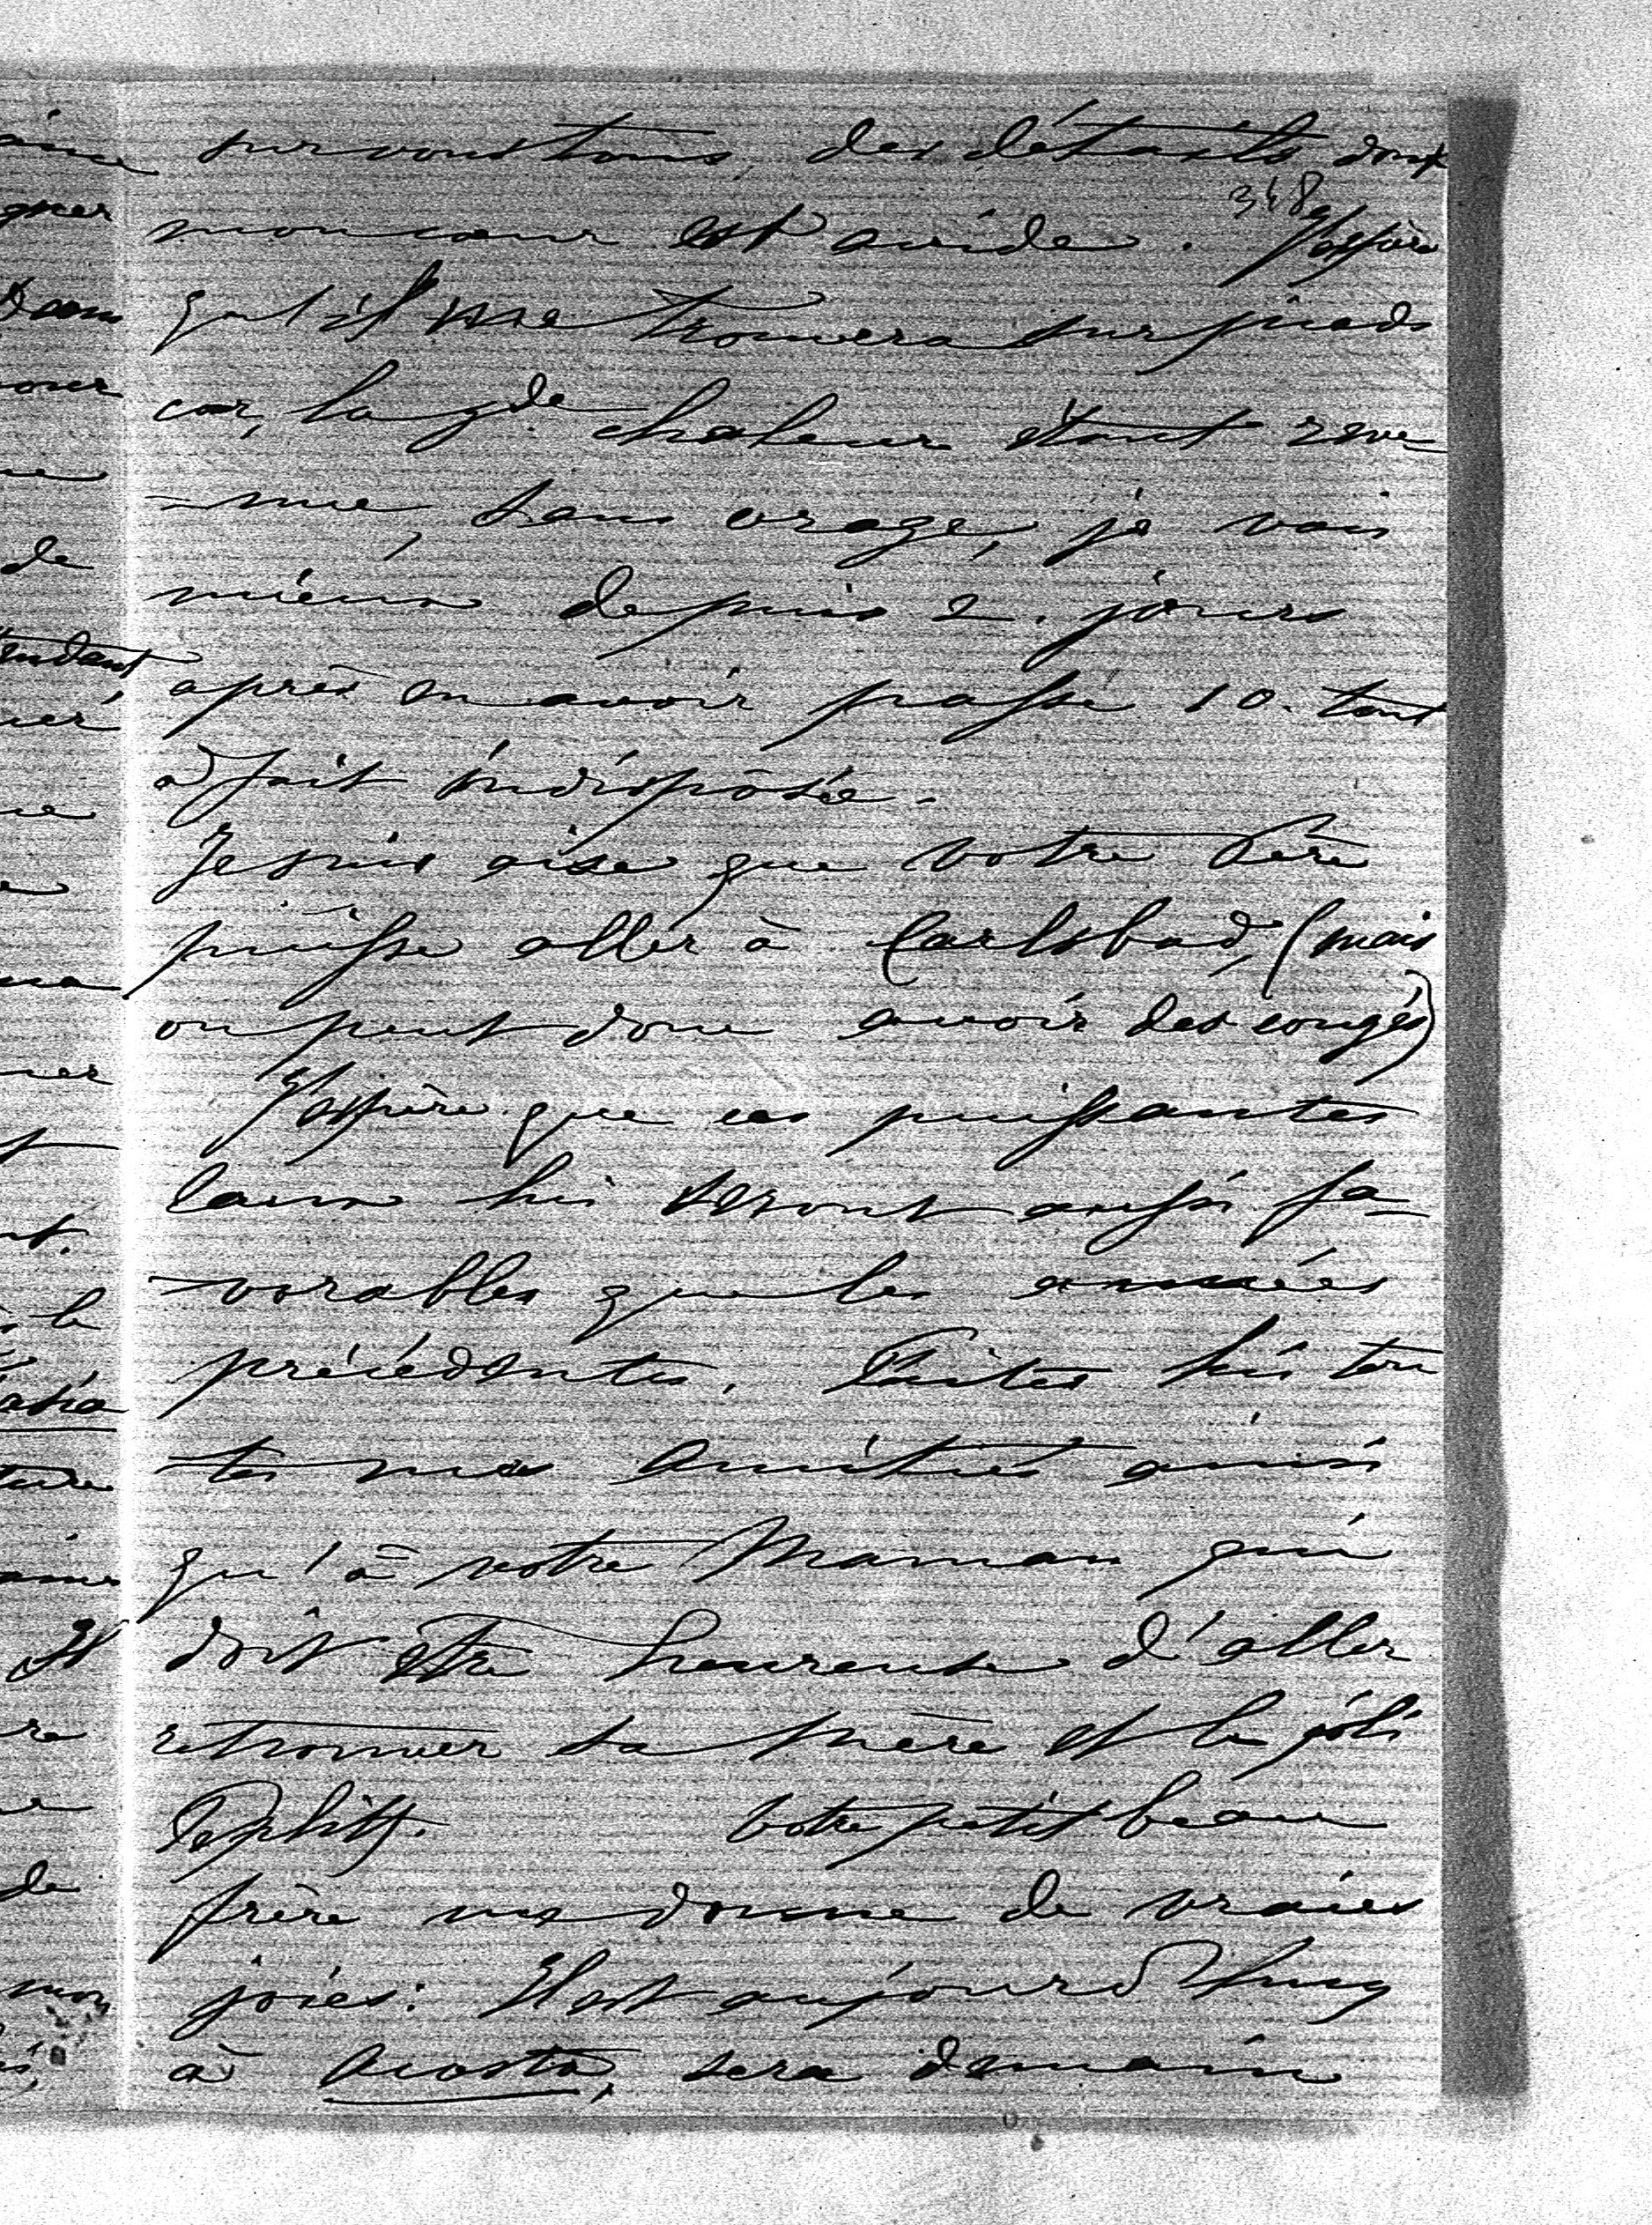 sur vous tous, des détails dont
348
mon cœur est avide. J'espère
qu'il me trouvera sur pieds
car, la gde chaleur étant reve
-nue, sans orage, je vais
mieux depuis 2. jours
après en avoir passé 10. tout
à fait indisposée.
Je suis aise que votre Père
puisse aller à Carlsbad, (mais
on peut donc avoir des congés)
J'espère que ces puissantes
eaux lui seront aussi fa-
-vorables que les années
précédentes. Faites lui tou
-tes mes Amitiés ainsi
qu'à votre Maman qui
doit être heureuse d'aller
retrouver sa mère et le joli
Teplitz. Votre petit beau
frère me donne de vraies
joies: Il est aujourd'huy
à Aosta, sera demain